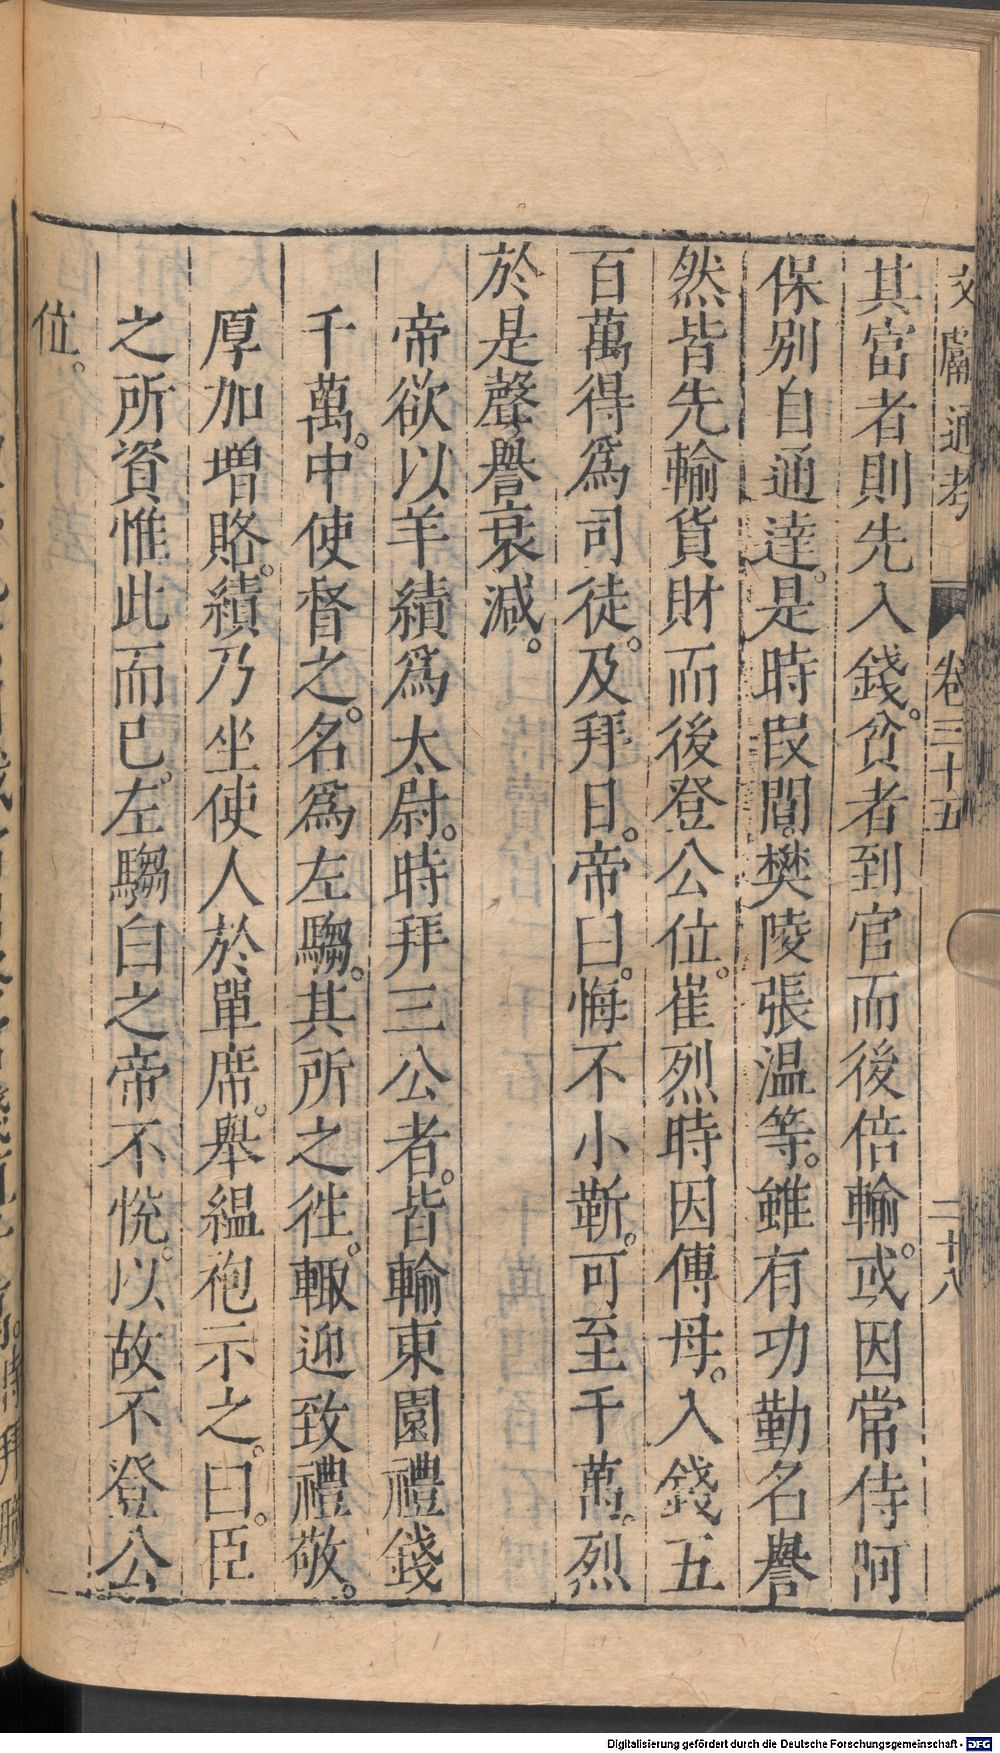 文獻通考 卷三十五 二十八
其富者則先入錢。貧者到官而後倍輸。或因常侍阿
保別自通達。是時叚閻。樊陵張温等。雖有功勤名譽
然皆先輸貨財而後登公位。崔烈時因傅母。入錢五
百萬得爲司徒。及拜日。帝曰。悔不小靳。可至千萬。烈
於是聲譽衰減。
帝欲以羊續爲太尉。時拜三公者。皆輸東園禮錢
千萬。中使督之。名爲左騶。其所之徃。輙迎致禮敬。
厚加增賂。續乃坐使人於單席。舉縕袍示之。曰。臣
之所資惟此而已。左騶白之帝不悅。以故不登公
位。
Digitalisierung gefördert durch die Deutsche Forschungsgemeinschaft - DFG